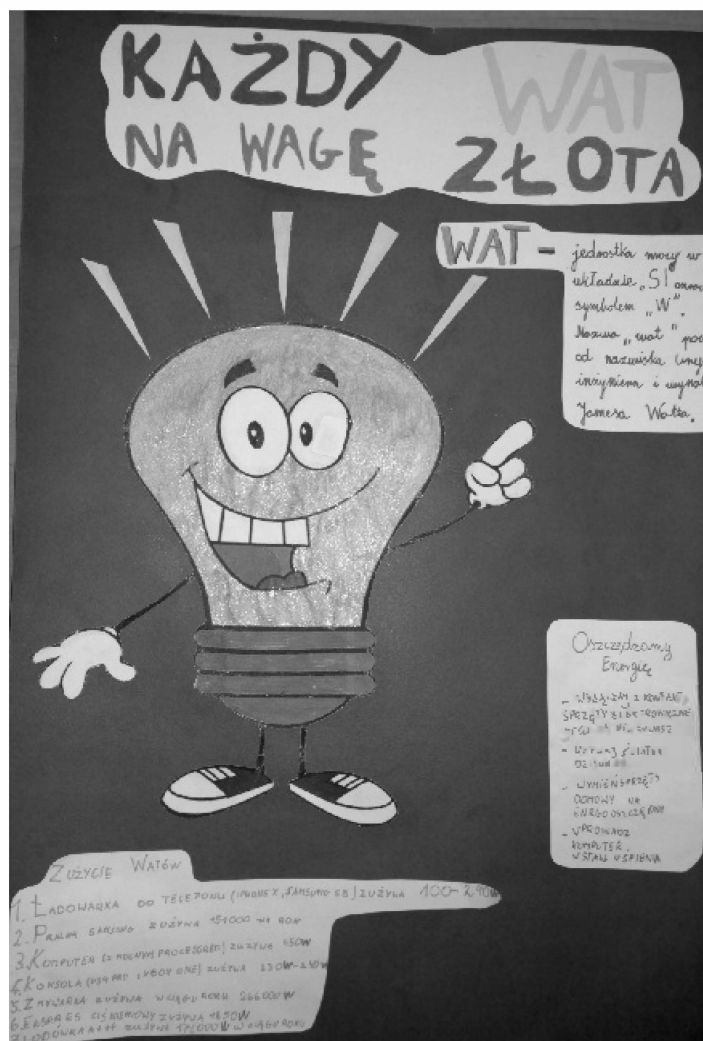 KAŻDY WAT
NA WAGĘ ZŁOTA
WAT - jednostka mocy w
układzie „SI
symbolem „W".
Nazwa „wat"
od nazwiska
inżyniera i
Jamesa Watta.
Oszczędzamy
Energię
- Z KONTAKT
SPRZĘTY ELEKTRONICZNE
- 
- WYMIEŃ SPRZĘTY
DOMOWY NA
ENERGOOSZCZĘDNE
- WPROWADZ
KOMPUTER
W STAN UŚPIENIA
ZUŻYCIE WATÓW
1. ŁADOWARKA DO TELEFONU (IPHONE X, SAMSUNG S8) ZUŻYWA 100-240W
2. PRALKA SAMSUNG ZUŻYWA 151000 NA ROK
3. KOMPUTER (Z MOCNYM PROCESOREM) ZUŻYWA 450W
4. KONSOLA (PS4 PRO ONE) ZUŻYWA
5. ZMYWARKA ZUŻYWA W CIĄGU ROKU 266000W
6. EKSPRES CIŚNIENIOWY ZUŻYWA 1850W
7. LODÓWKA ZUŻYWA W CIĄGU ROKU